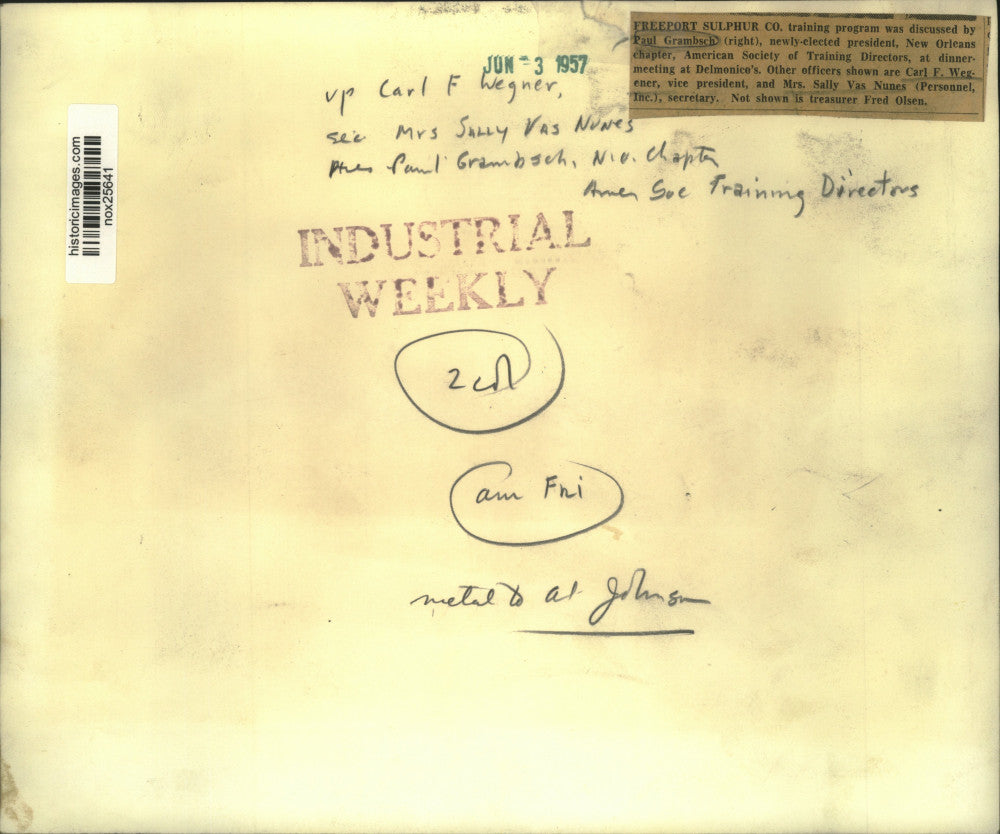 FREEPORT SULPHUR CO. training program was discussed by
Paul Grambsch (right), newly-elected president, New Orleans
chapter, American Society of Training Directors, at dinner-
meeting at Delmonico's. Other officers shown are Carl F. Weg-
ener, vice president, and Mrs. Sally Vas Nunes (Personnel,
Inc.), secretary. Not shown is treasurer Fred Olsen.
JUN - 3 1957
vp Carl F Wegner,
sec Mrs SALLY VAS NUNES
Pres Paul Grambsch, N.O. Chapter
Amer Soc Training Directors
historicimages.com
nox25641
INDUSTRIAL
WEEKLY
2 col
am Fri
metal to Al Johnson